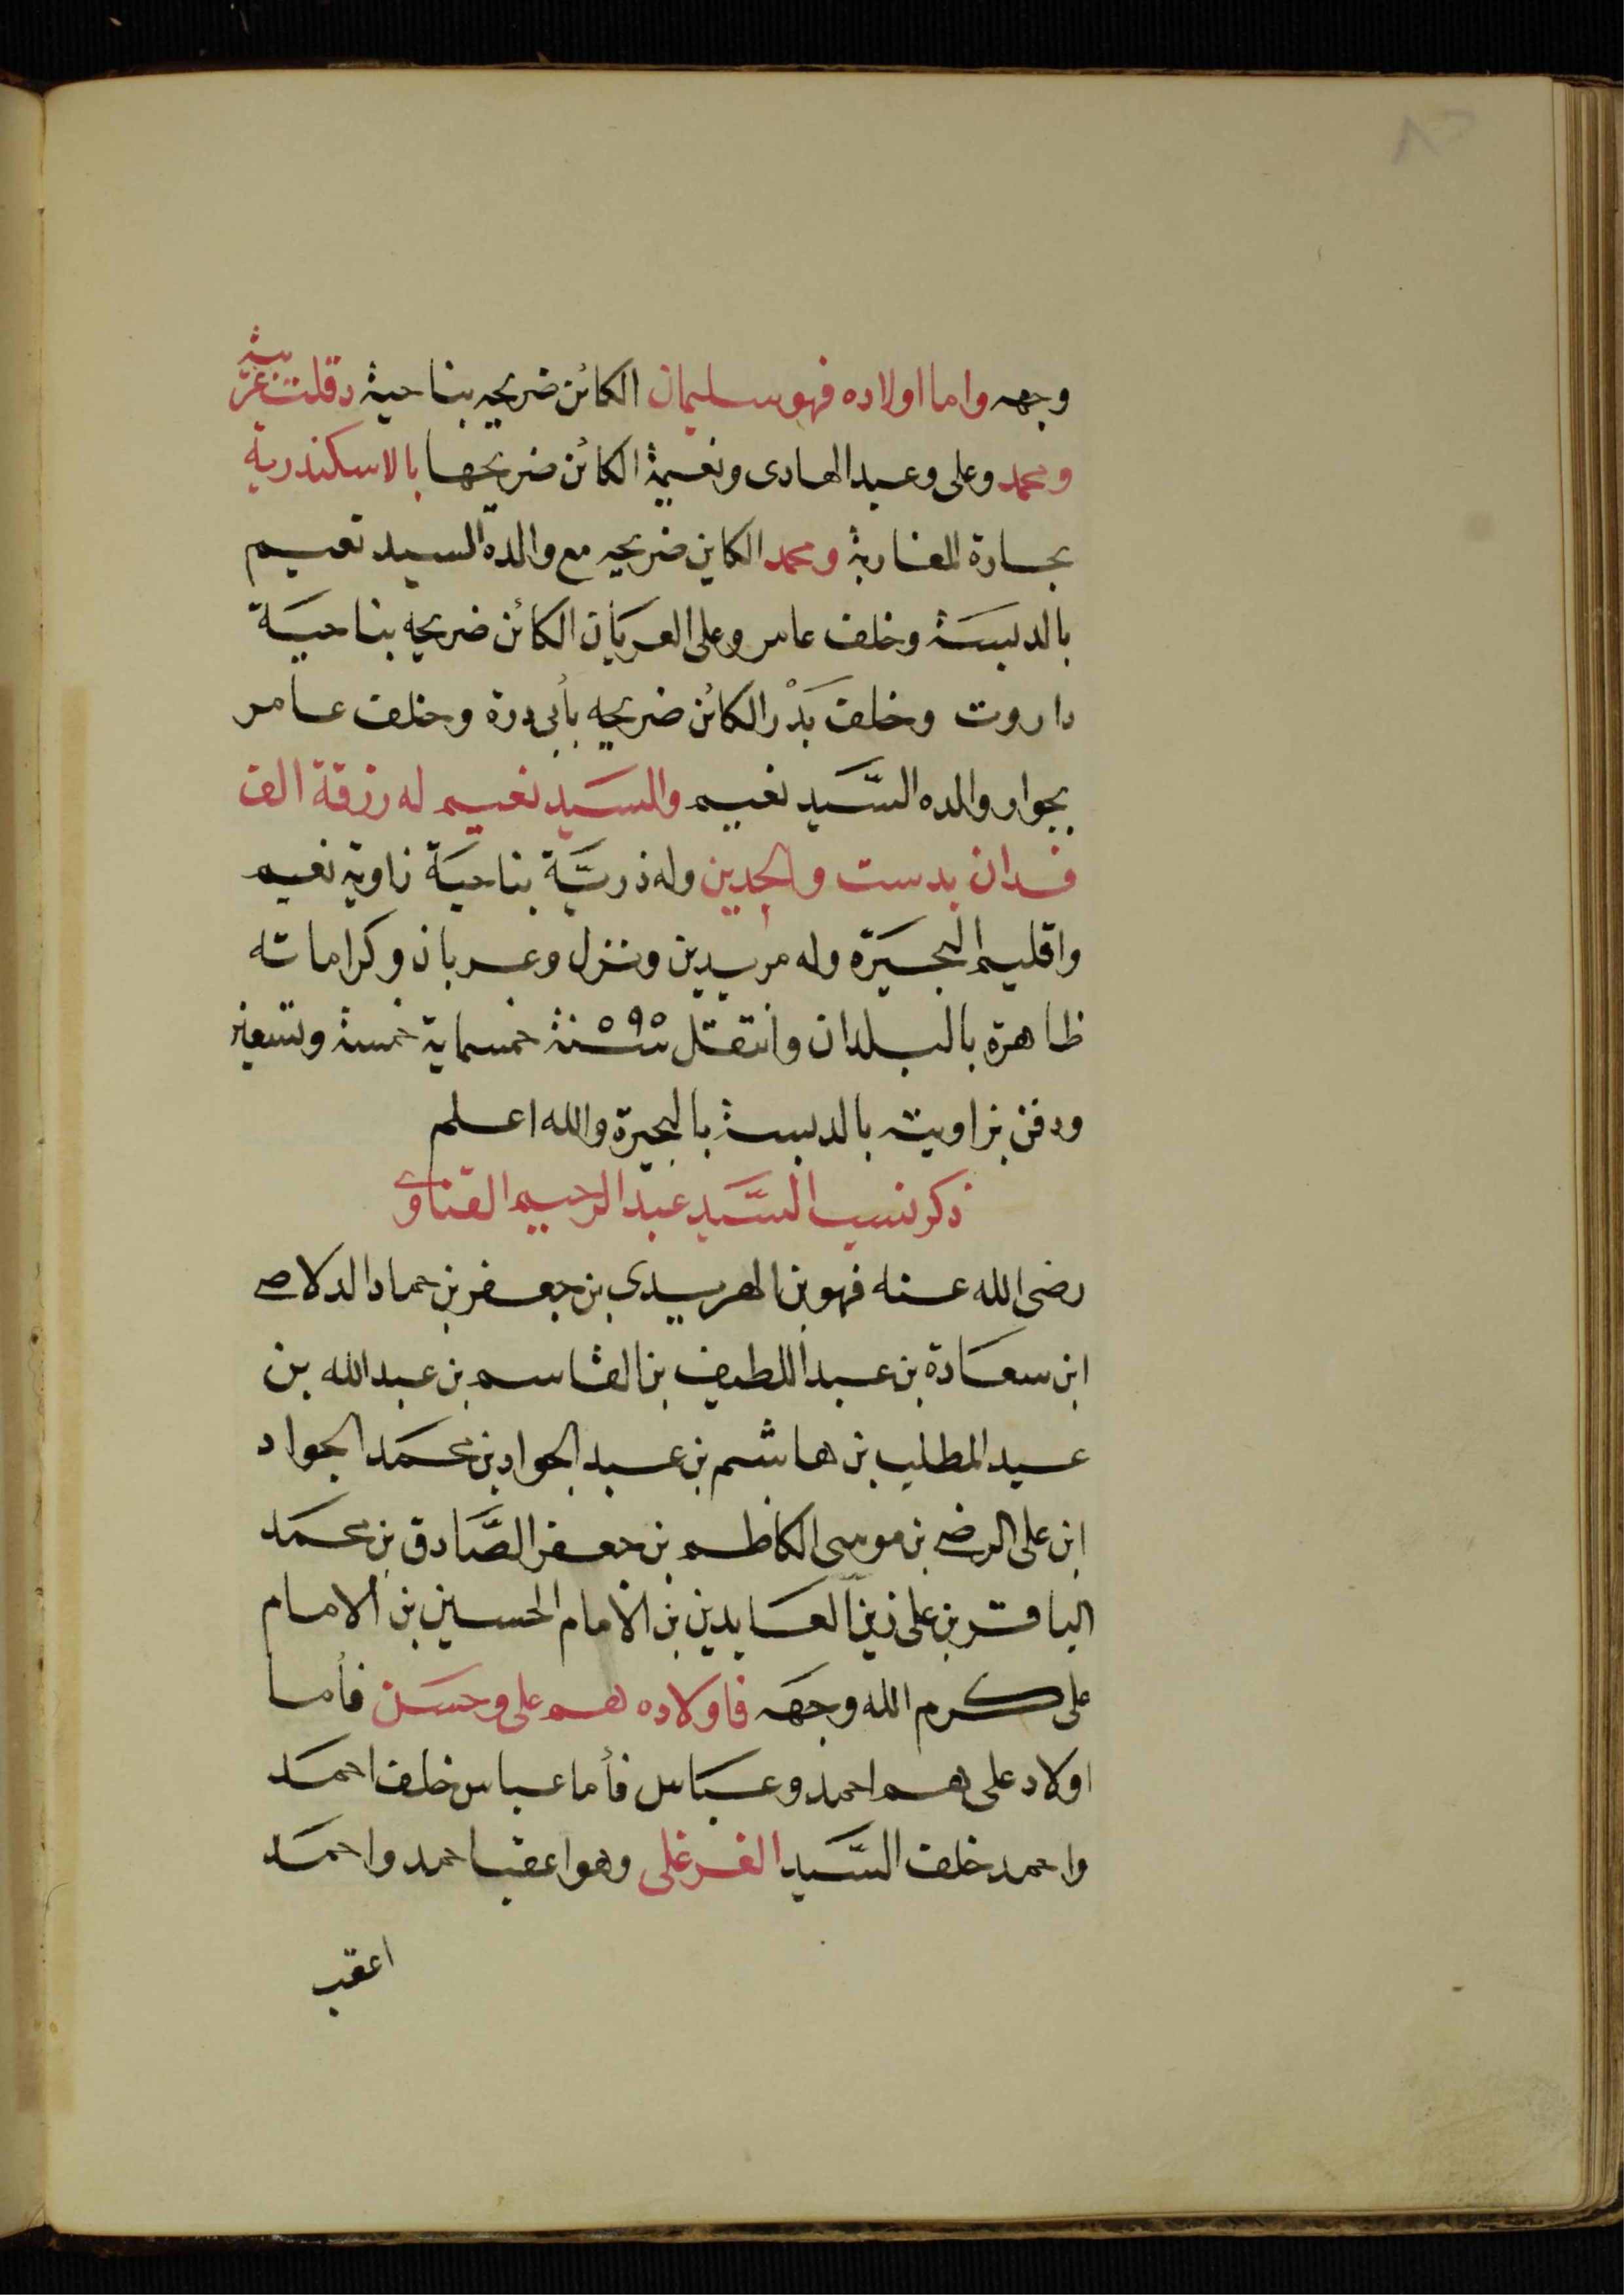 وجهه واما اولاده فهو سليمان الكائن ضريحه بناحية دقلت غربية
ومحمد وعلى وعبد الهادى ونعيمة الكائن ضريحها بالاسكندرية
بحارة المغاربة ومحمد الكاين ضريحه مع والده السيد نعيم
بالدلبسة وخلف عامر وعلى العريان الكائن ضريحه بناحية
داروت وخلف بَدْر الكائن ضريحه بأبى درة وخلف عامر
بجوار والده السَّيد نعيم والسيد نعيم له رزقة الف
فدان بدست والجدين وله ذريَّة بناحية زاوية نعيم
واقليم البحيرة وله مريدين ونزل وعربان وكراماته
ظاهرة بالبلدان وانتقل سنة ٥٩٥ خمسماية خمسة وتسعين
ودفن بزاويته بالدلبسة بالبحيرة والله اعلم
ذكر نسب السَّيد عبد الرحيم القناوى
رضى الله عنه فهو بن الهريدى بن جعفر بن حماد الدلاصى
ابن سعادة بن عبد اللطيف بن القاسم بن عبد الله بن
عبد المطلب بن هاشم بن عبد الجواد بن محمد الجواد
ابن على الرضى بن موسى الكاظم بن جعفر الصَّادق بن محمد
الباقر بن على زين العابدين بن الامام الحسين بن الامام
على كرم الله وجهه فاولاده هم على وحسن فأما
اولاد على هم احمد وعباس فأما عباس خلف احمد
واحمد خلف السَّيد الفرغلى وهو اعقب احمد واحمد
اعقب